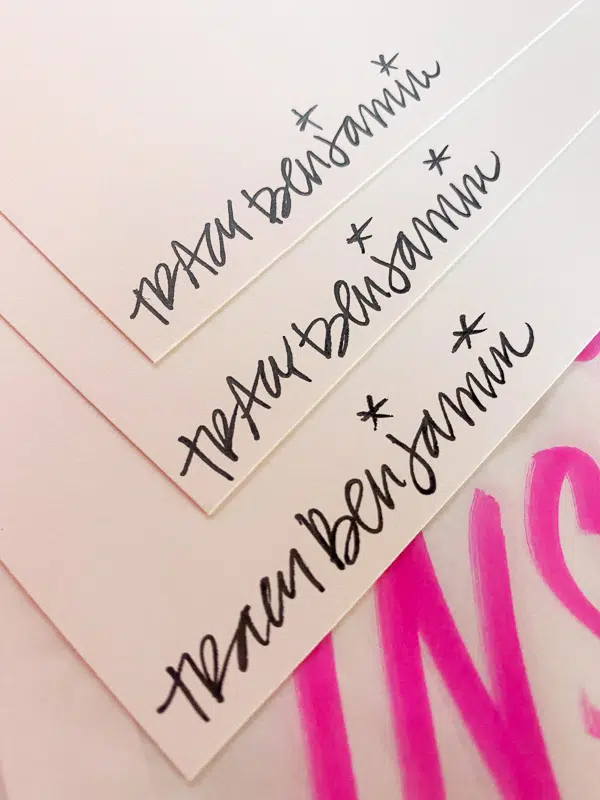 TRACY Benjamin
TRACY Benjamin
TRacy Benjamin
INS